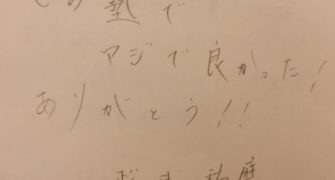 この塾で
マジで良かった!
ありがとう!!